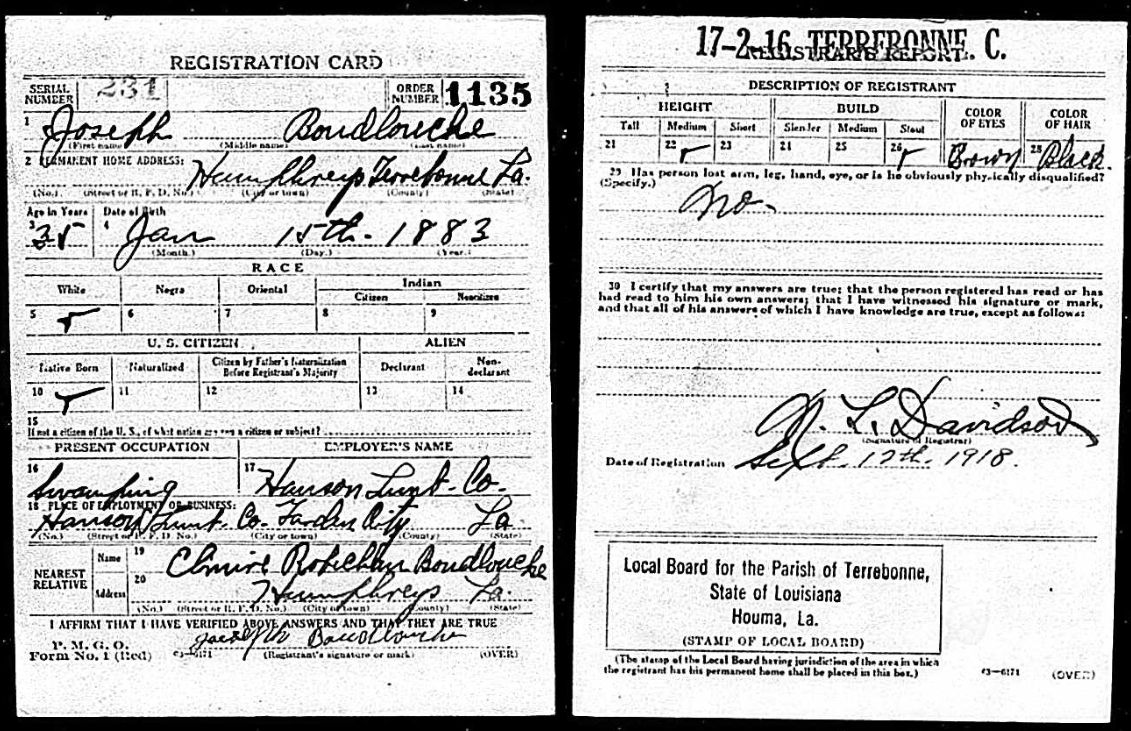 REGISTRATION CARD
SERIAL NUMBER 231 ORDER NUMBER 1135
1 Joseph Boudlouche
(First name) (Middle name) (Last name)
2 PERMANENT HOME ADDRESS:
Humphreys Terrebonne La.
(No.) (Street or R. F. D. No.) (City or town) (County) (State)
Age in Years Date of Birth
3 35 4 Jan 15th. 1883
(Month.) (Day.) (Year.)
RACE
White Negro Oriental Indian
Citizen Noncitizen
5 6 7 8 9
U. S. CITIZEN ALIEN
Native Born Naturalized Citizen by Father's Naturalization Before Registrant's Majority Declarant Non-declarant
10 11 12 13 14
15
If not a citizen of the U. S., of what nation are you a citizen or subject?
PRESENT OCCUPATION EMPLOYER'S NAME
16 Swamping 17 Hanson Lumb. Co.
18 PLACE OF EMPLOYMENT OR BUSINESS:
Hanson Lumb. Co. Garden City La
(No.) (Street or R. F. D. No.) (City or town) (County) (State)
NEAREST RELATIVE Name 19 Elmire Boudlouche
Address 20 Humphreys La.
(No.) (Street or R. F. D. No.) (City or town) (County) (State)
I AFFIRM THAT I HAVE VERIFIED ABOVE ANSWERS AND THAT THEY ARE TRUE
P. M. G. O.
Form No. 1 (Red) 63—6171 Boudlouche
(Registrant's signature or mark) (OVER)
17-2-16 TERREBONNE. C.
REGISTRAR'S REPORT
DESCRIPTION OF REGISTRANT
HEIGHT BUILD COLOR OF EYES COLOR OF HAIR
Tall Medium Short Slender Medium Stout
21 22 23 24 25 26 Brown 28 Black
29 Has person lost arm, leg, hand, eye, or is he obviously physically disqualified?
(Specify.)
No.
30 I certify that my answers are true; that the person registered has read or has
had read to him his own answers; that I have witnessed his signature or mark,
and that all of his answers of which I have knowledge are true, except as follows:
L. Davidson
(Signature of Registrar)
Date of Registration Sept. 12th. 1918.
Local Board for the Parish of Terrebonne,
State of Louisiana
Houma, La.
(STAMP OF LOCAL BOARD)
(The stamp of the Local Board having jurisdiction of the area in which
the registrant has his permanent home shall be placed in this box.)
63—6171 (OVER)